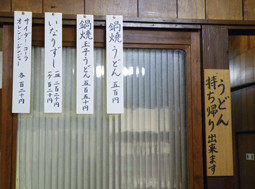 うどん
持ち帰り
出来ます
鍋焼うどん 五百円
鍋焼玉子うどん 五百五十円
いなりずし
一皿 二百二十円
一ケ 百十円
サイダー・コーラ
オレンジジュース
各 百二十円